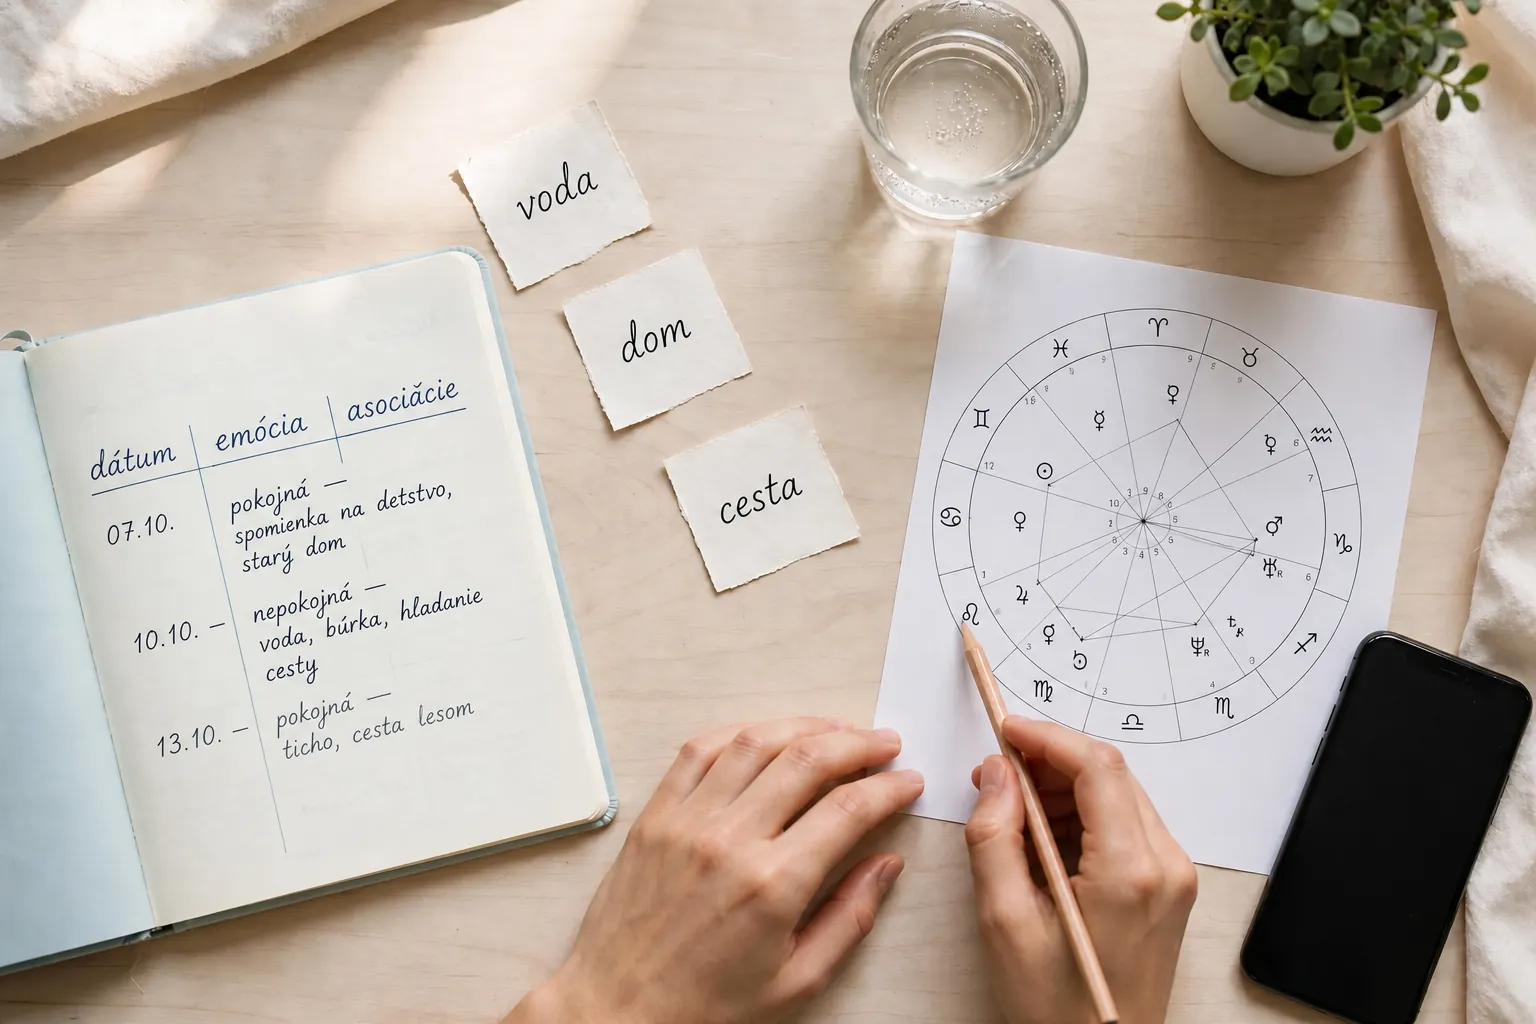 dátum emócia asociăcie
07.10. pokojná —
spomienka na detstvo,
starý dom
10.10. — nepokojná —
voda, búrka, hladanie
cesty
13.10. — pokojná —
ticho, cesta lesom
voda
dom
cesta